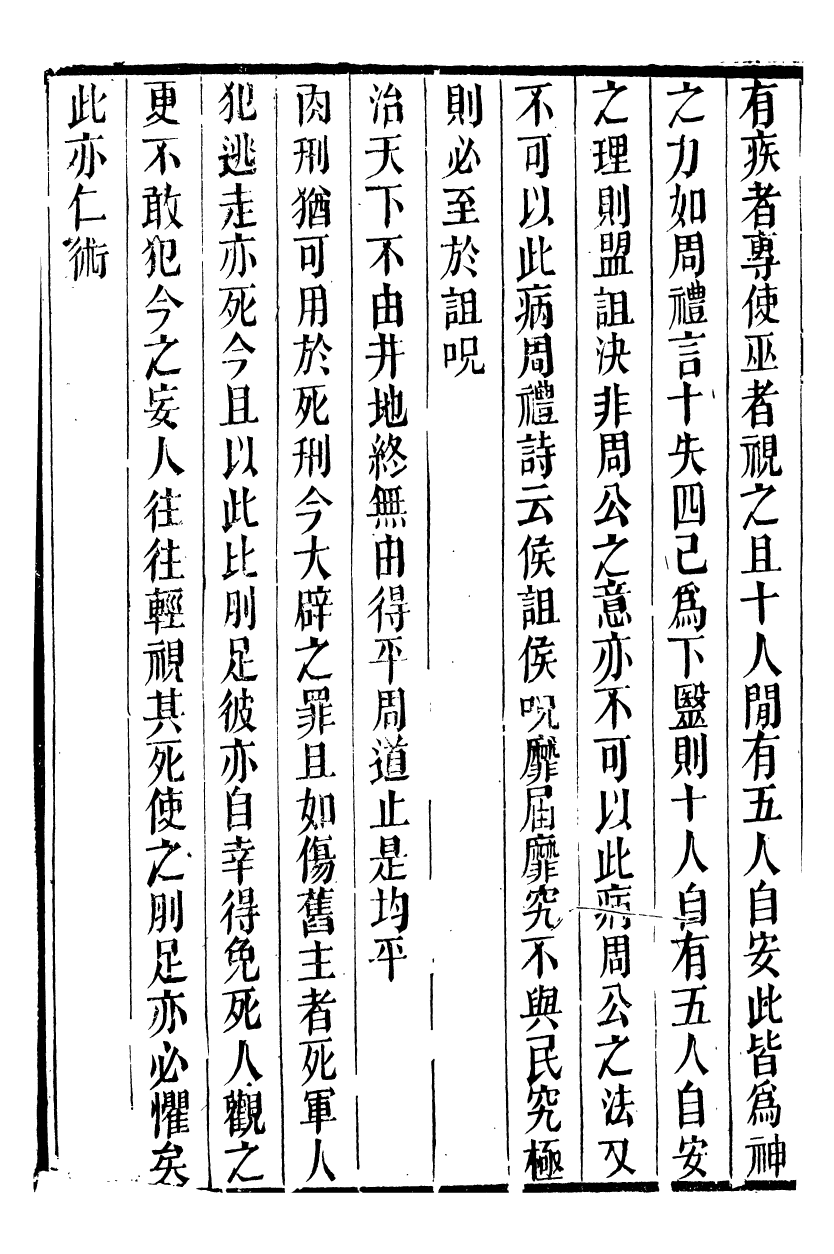 有疾者專使巫者視之且十人閒有五人自安此皆爲神
之力如周禮言十失四已爲下毉則十人自有五人自安
之理則盟詛決非周公之意亦不可以此病周公之法又
不可以此病周禮詩云侯詛侯呪靡屆靡究不與民究極
則必至於詛呪
治天下不由井地終無由得平周道止是均平
肉刑猶可用於死刑今大辟之罪且如傷舊主者死軍人
犯逃走亦死今且以此比刖足彼亦自幸得免死人觀之
更不敢犯今之妄人往往輕視其死使之刖足亦必懼矣
此亦仁術